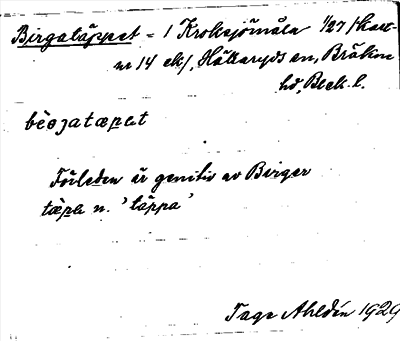 Birgatäppet = 1 Kroksjömåla 1/27 /kart-
nr 14 ek/, Hällaryds sn, Bräkne
hd, Blek. l.
bèrgatæpet
Förleden är genitiv av Birger
tæpe n. 'täppa'
Tage Ahldén 1929